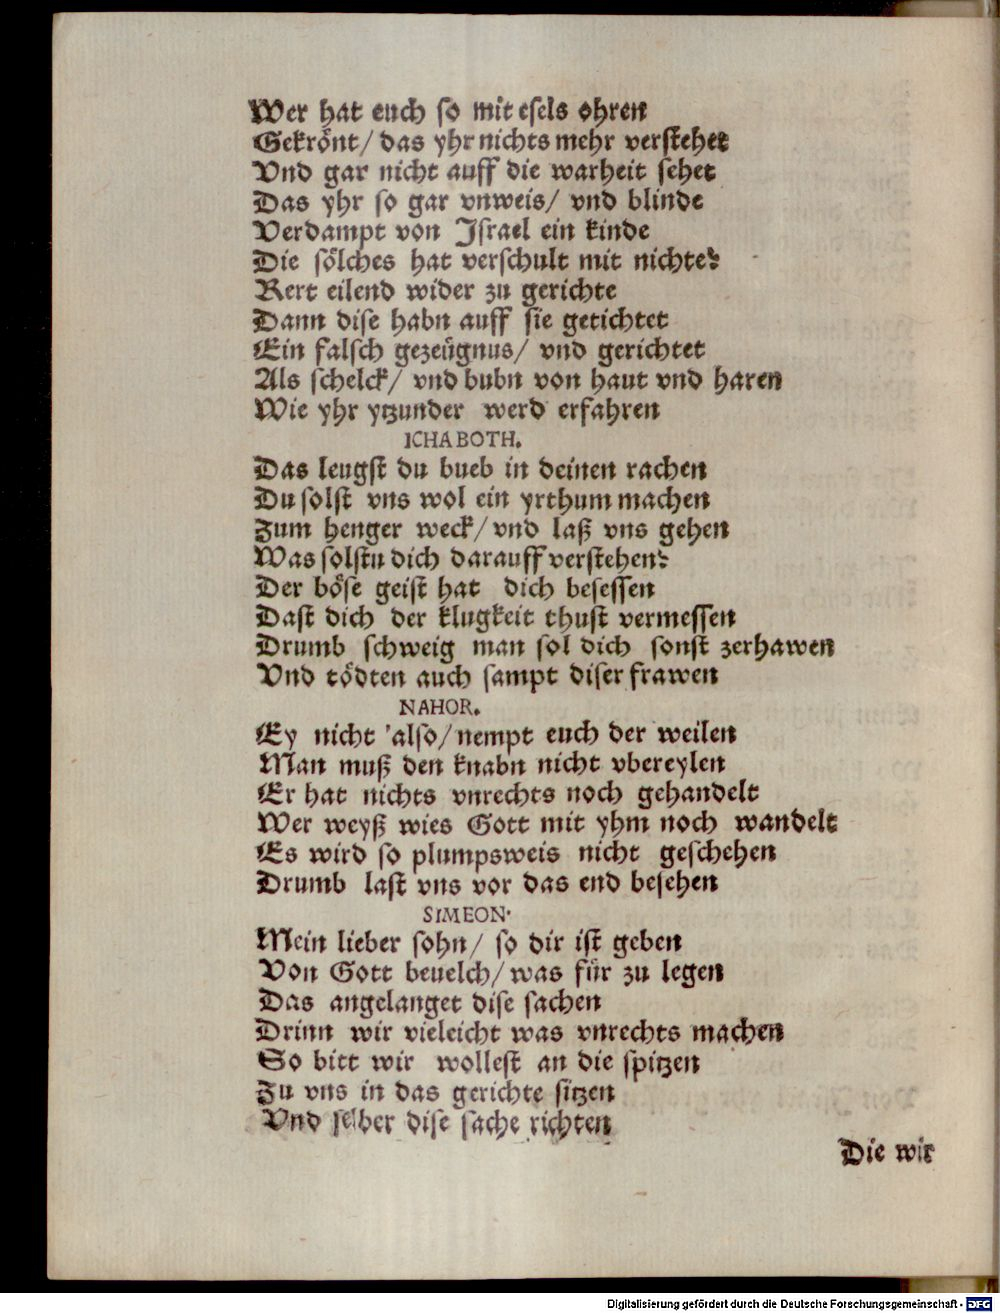 Wer hat euch so mit esels ohren
Gekrönt/ das yhr nichts mehr verstehet
Vnd gar nicht auff die warheit sehet
Das yhr so gar vnweis/ vnd blinde
Verdampt von Israel ein kinde
Die sölches hat verschult mit nichte?
Kert eilend wider zu gerichte
Dann dise habn auff sie getichtet
Ein falsch gezeügnus/ vnd gerichtet
Als schelck/ vnd bubn von haut vnd haren
Wie yhr ytzunder werd erfahren
ICHABOTH.
Das leugst du bueb in deinen rachen
Du solst vns wol ein yrthum machen
Zum henger weck/ vnd laß vns gehen
Was solstu dich darauff verstehen?
Der böse geist hat dich besessen
Dast dich der klugkeit thust vermessen
Drumb schweig man sol dich sonst zerhawen
Vnd tödten auch sampt diser frawen
NAHOR.
Ey nicht also/ nempt euch der weilen
Man muß den knabn nicht vbereylen
Er hat nichts vnrechts noch gehandelt
Wer weyß wies Gott mit yhm noch wandelt
Es wird so plumpsweis nicht geschehen
Drumb last vns vor das end besehen
SIMEON.
Mein lieber sohn/ so dir ist geben
Von Gott beuelch/ was für zu legen
Das angelanget dise sachen
Drinn wir vieleicht was vnrechts machen
So bitt wir wollest an die spitzen
Zu vns in das gerichte sitzen
Vnd selber dise sache richten
Die wir
Digitalisierung gefördert durch die Deutsche Forschungsgemeinschaft - DFG